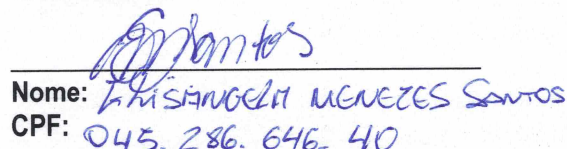 Santos
Nome: ELISANGELA MENEZES SANTOS
CPF: 045. 286. 646. 40